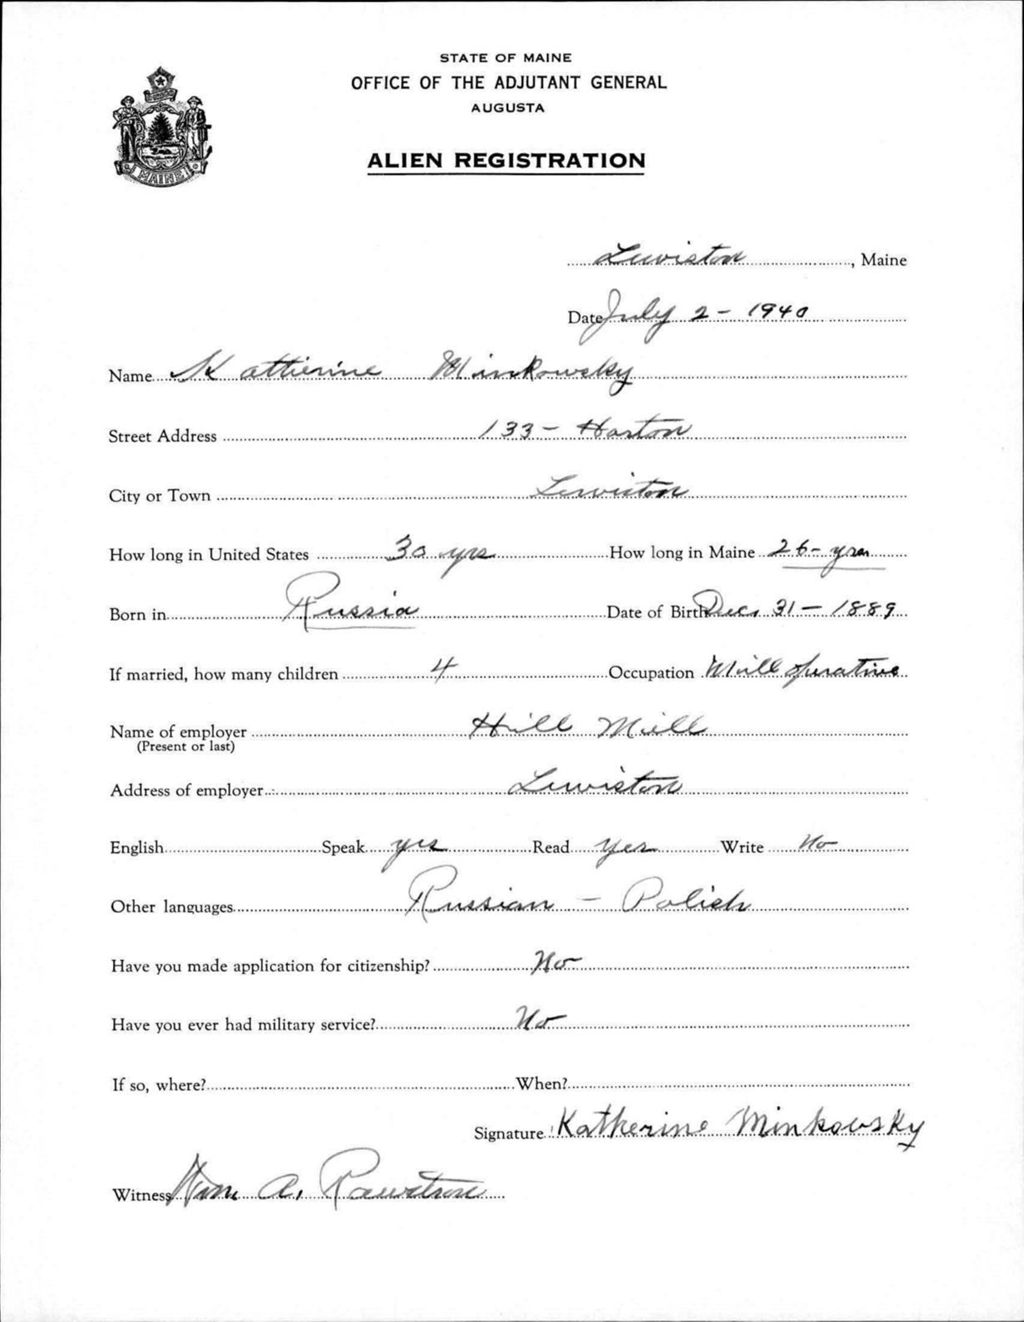 STATE OF MAINE
OFFICE OF THE ADJUTANT GENERAL
AUGUSTA
ALIEN REGISTRATION
MAINE
Lewiston, Maine
Date July 2 - 1940
Name Katherine Minkowsky
Street Address 133 - Horton
City or Town Lewiston
How long in United States 30 yrs How long in Maine 26 - yrs
Born in Russia Date of Birth Dec. 31 - 1889
If married, how many children 4 Occupation Mill operative
Name of employer Hill Mill
(Present or last)
Address of employer Lewiston
English Speak yes Read Yes Write No
Other languages Russian - Polish
Have you made application for citizenship? No
Have you ever had military service? No
If so, where? When?
Signature Katherine Minkowsky
Witness Wm A.